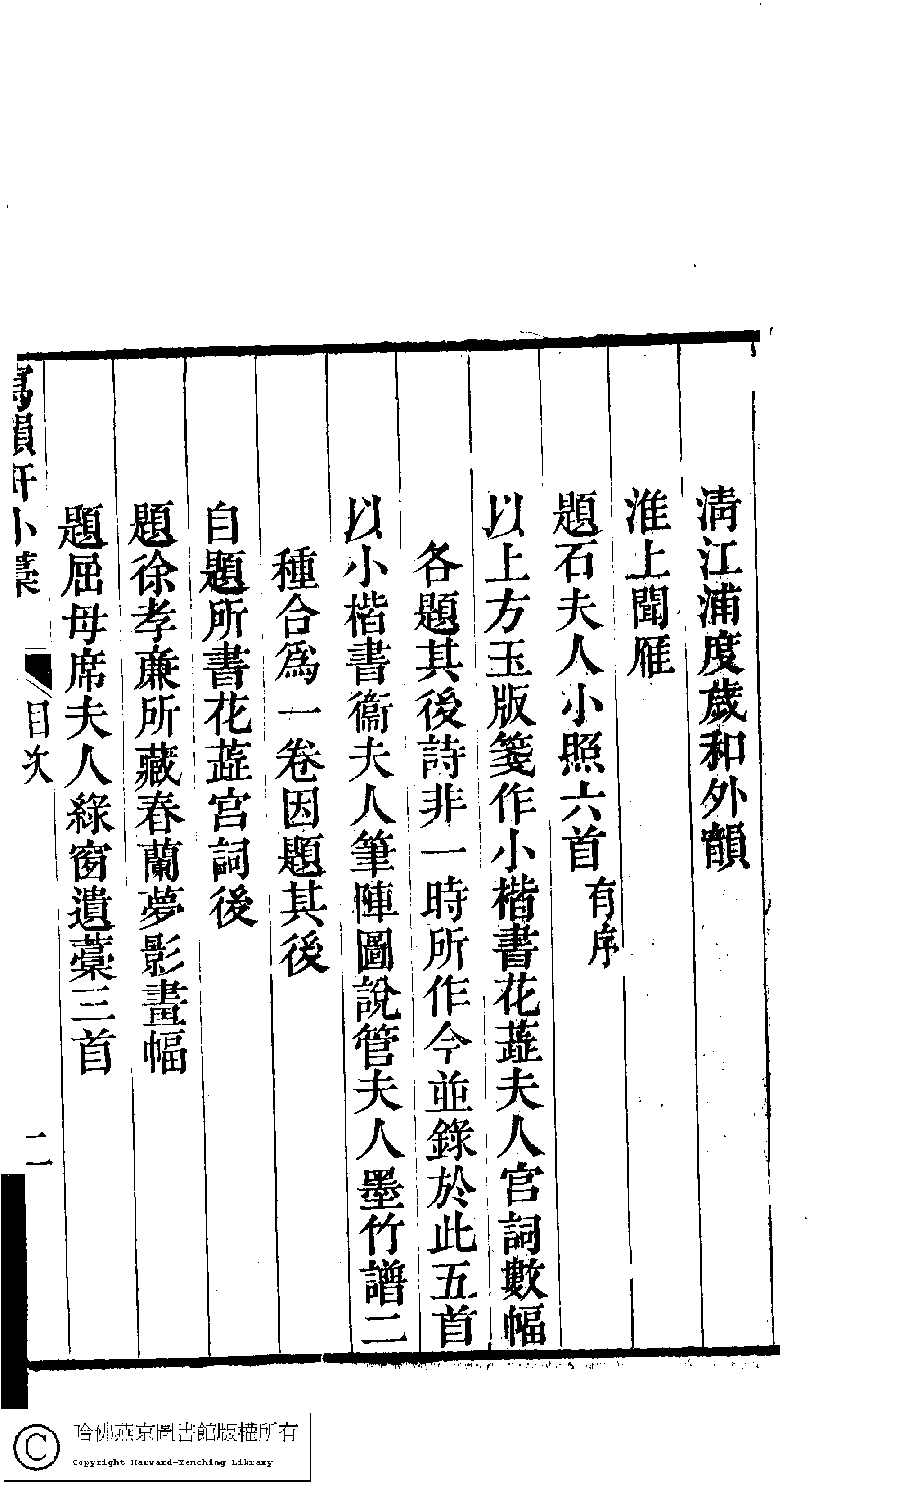 清江浦度歲和外韻
淮上聞雁
題石夫人小照六首 有序
以上方玉版箋作小楷書花蕋夫人宫詞數幅
各題其後詩非一時所作今並錄於此五首
以小楷書衞夫人筆陣圖說管夫人墨竹譜二
種合爲一卷因題其後
自題所書花蕋宫詞後
題徐孝亷所藏春蘭夢影畫幅
題屈母席夫人綠窗遺藁三首
寫韻軒小藁 目次 二
哈佛燕京圖書館版權所有
Copyright Harvard-Yenching Library